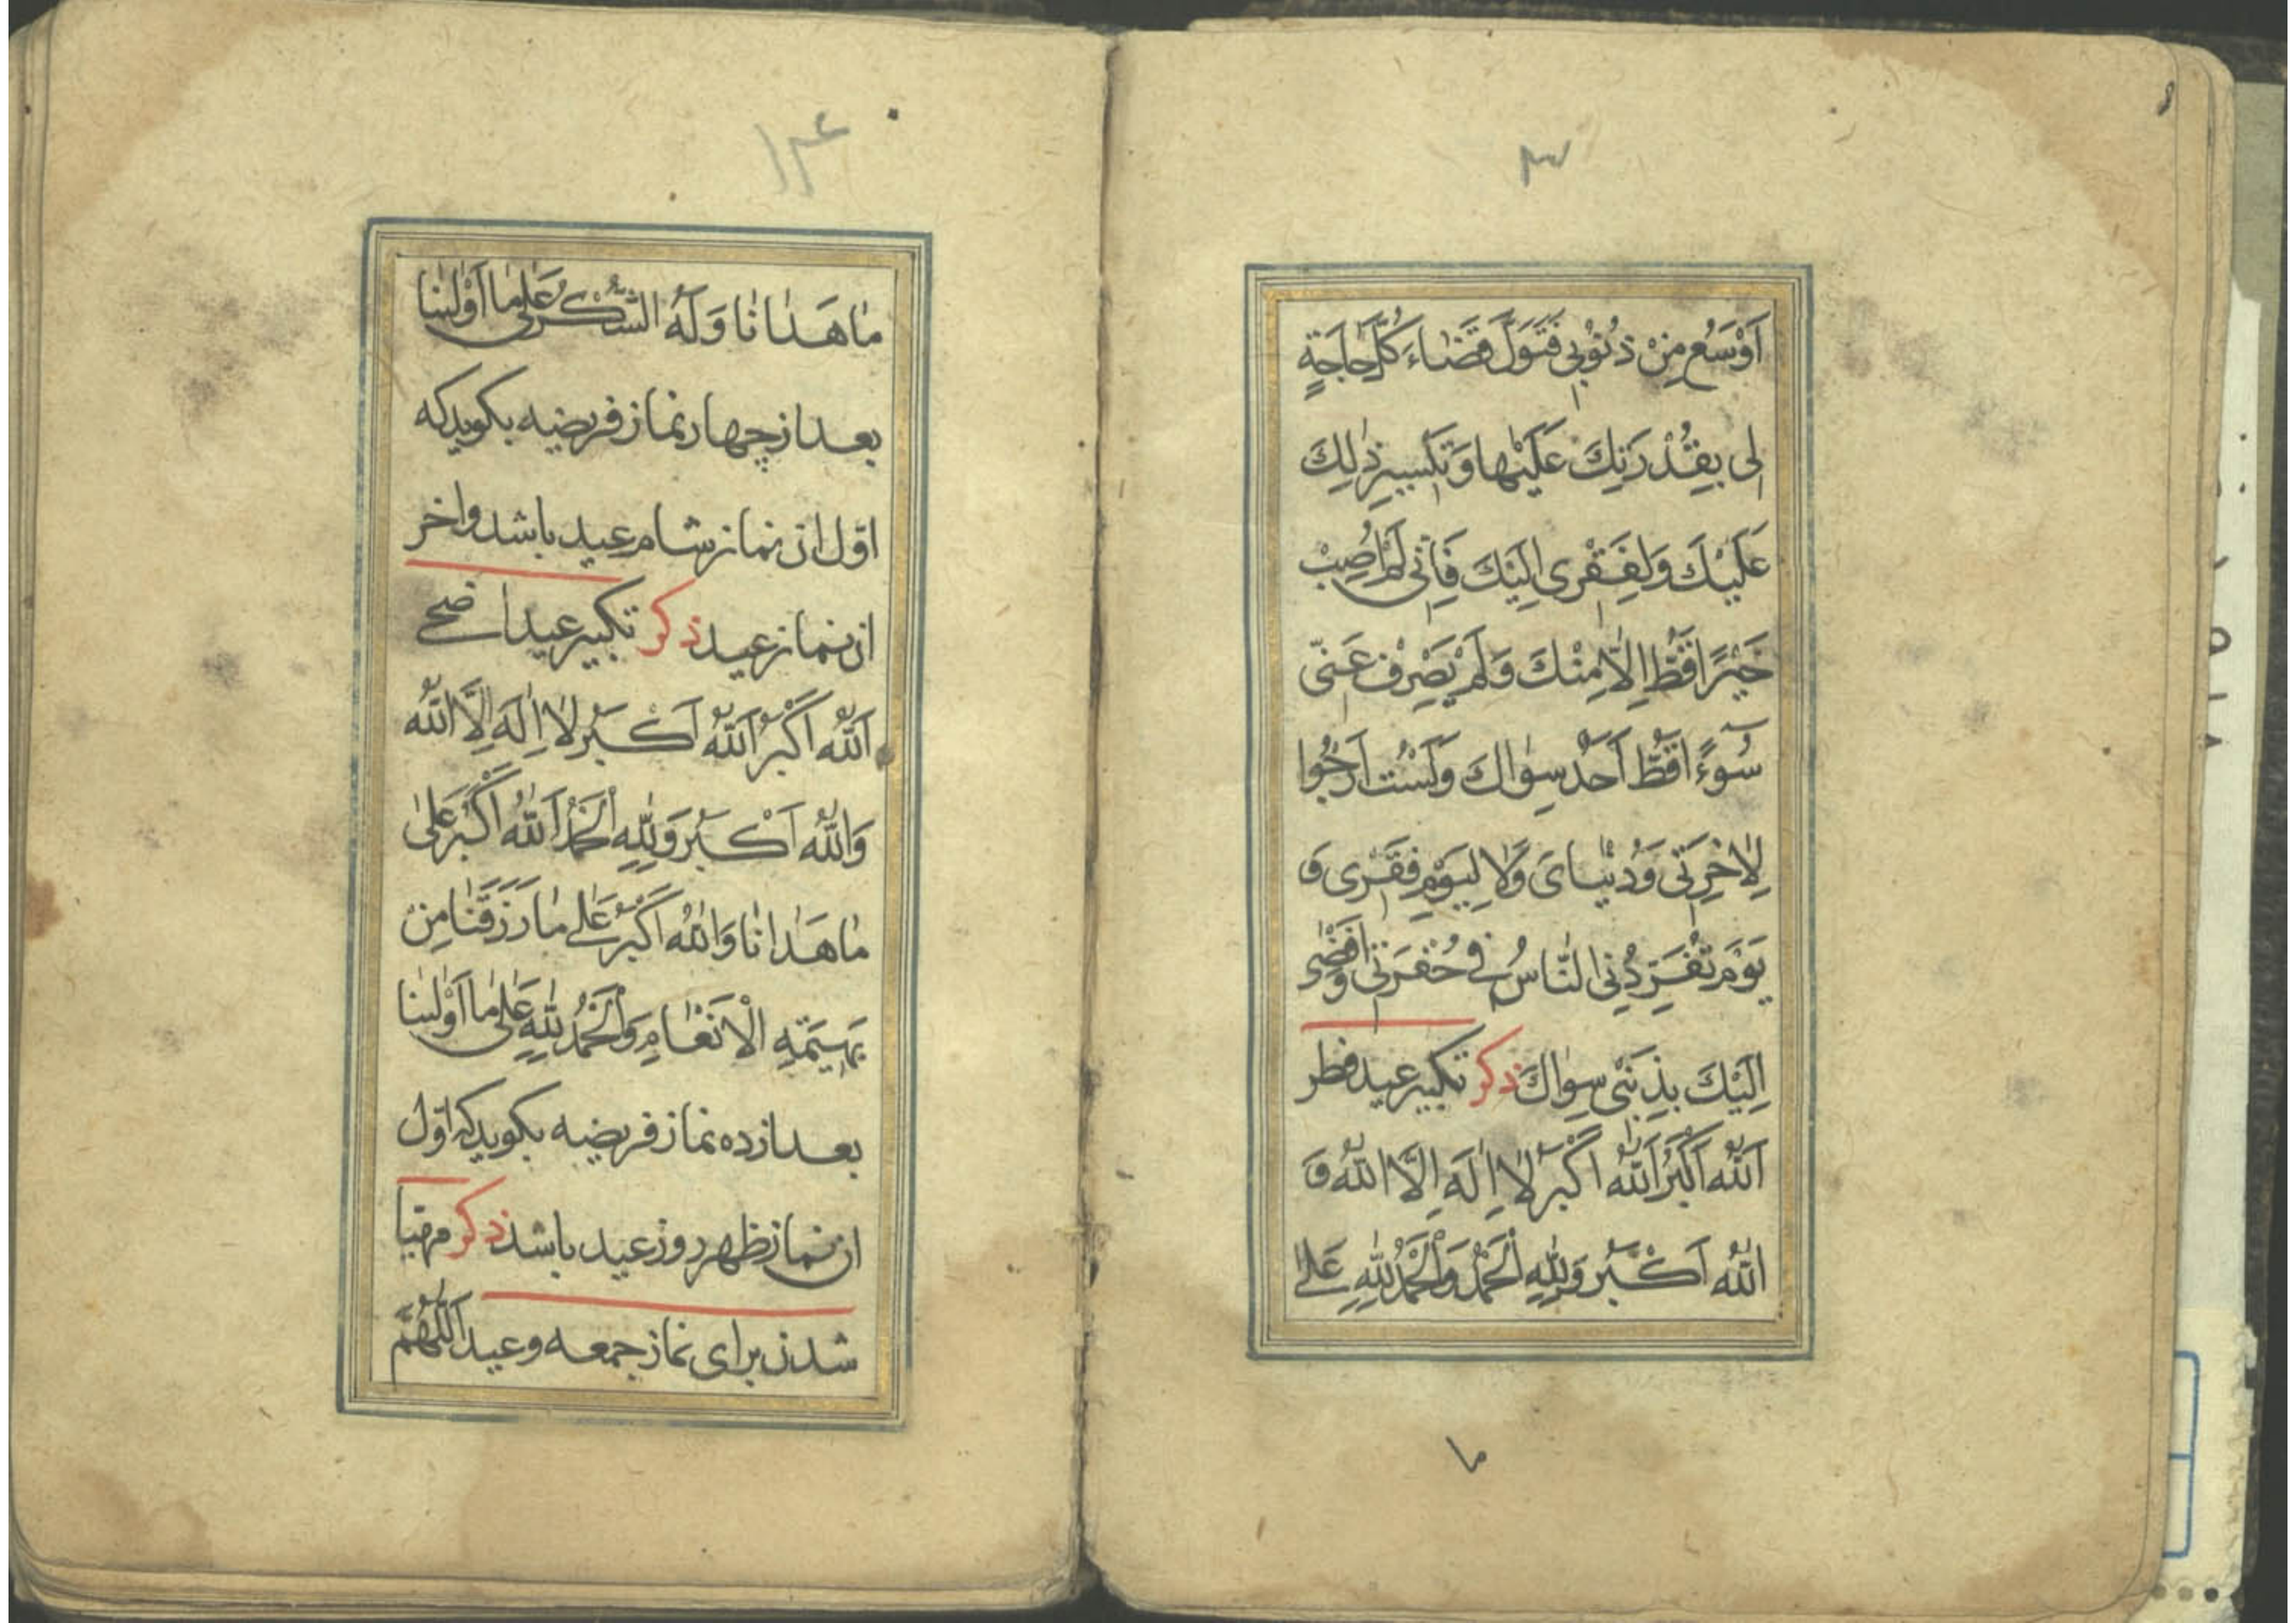 اَوْسَعُ مِنْ ذُنُوبِي فَتَوَلَّ قَضَاءَ كُلِّ حَاجَةٍ
لِی بِقُدْرَتِكَ عَلَيْهَا وَتَيْسِيرِ ذٰلِكَ
عَلَيْكَ وَلِفَقْرِی اِلَيْكَ فَاِنِّی لَمْ اُصِبْ
خَيْرًا قَطُّ اِلَّا مِنْكَ وَلَمْ يَصْرِفْ عَنِّی
سُوۤءًا قَطُّ اَحَدٌ سِوٰاكَ وَلَسْتُ اَرْجُوا
لِاٰخِرَتِی وَدُنْيٰایَ وَلَا لِيَوْمِ فَقْرِی وَ
يَوْمَ تُفَرِّدُنِی النَّاسُ فِی حُفْرَتِی وَاُفْضِی
اِلَيْكَ بِذَنْبِی سِوٰاكَ ذکر تکبیر عید فطر
اَللّٰهُ اَكْبَرُ اَللّٰهُ اَكْبَرُ لَا اِلٰهَ اِلَّا اللّٰهُ وَ
اللّٰهُ اَكْبَرُ وَلِلّٰهِ الْحَمْدُ وَالْحَمْدُ لِلّٰهِ عَلٰی
۱۳۶
مٰا هَدٰانٰا وَلَهُ الشُّكْرُ عَلٰی مٰا اَوْلٰینٰا
بعد از چهار نماز فریضه بکوید که
اوّل ان نماز شام عید باشد واخر
ان نماز عید ذکر تکبیر عید اضحی
اَللّٰهُ اَكْبَرُ اَللّٰهُ اَكْبَرُ لَا اِلٰهَ اِلَّا اللّٰهُ
وَاللّٰهُ اَكْبَرُ وَلِلّٰهِ الْحَمْدُ اَللّٰهُ اَكْبَرُ عَلٰی
مٰا هَدٰانٰا وَاللّٰهُ اَكْبَرُ عَلٰی مٰا رَزَقَنٰا مِنْ
بَهِيمَةِ الْاَنْعٰامِ وَالْحَمْدُ لِلّٰهِ عَلٰی مٰا اَوْلٰینٰا
بعد از ده نماز فریضه بکوید که اوّل
ان نماز ظهر روز عید باشد ذکر مهیّا
شدن برای نماز جمعه وعید اَللّٰهُمَّ